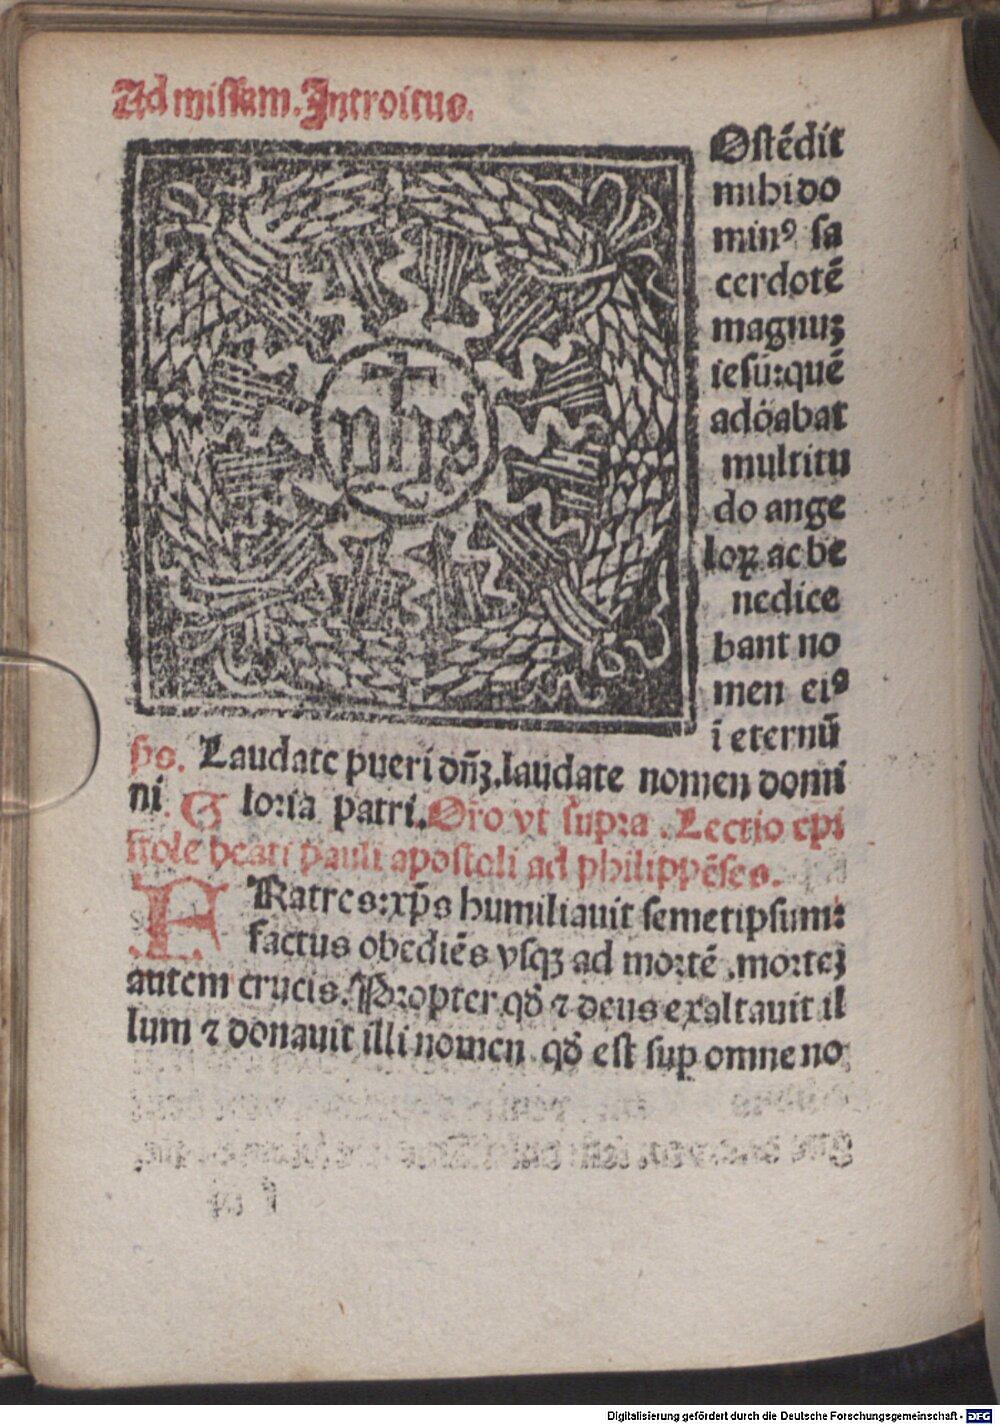 Ad missam. Introitus.
yhs
Ostēdit
mihi do
minꝰ sa
cerdotē
magnuꝫ
iesū:quē
adōabat
multitu
do ange
loꝝ ac be
nedice
bant no
men eiꝰ
ī eternū
p̄s. Laudate pueri dn̄ꝫ.laudate nomen domi
ni. Gloria patri. Oro vt supra. Lectio epi
stole beati pauli apostoli ad philippēses.
FRatres:xp̄s humiliauit semetipsum:
factus obediēs vsqꝫ ad mortē .morteꝫ
autem crucis. Propter qđ ⁊ deus exaltauit il
lum ⁊ donauit illi nomen qđ est sup omne no
Digitalisierung gefördert durch die Deutsche Forschungsgemeinschaft - DFG